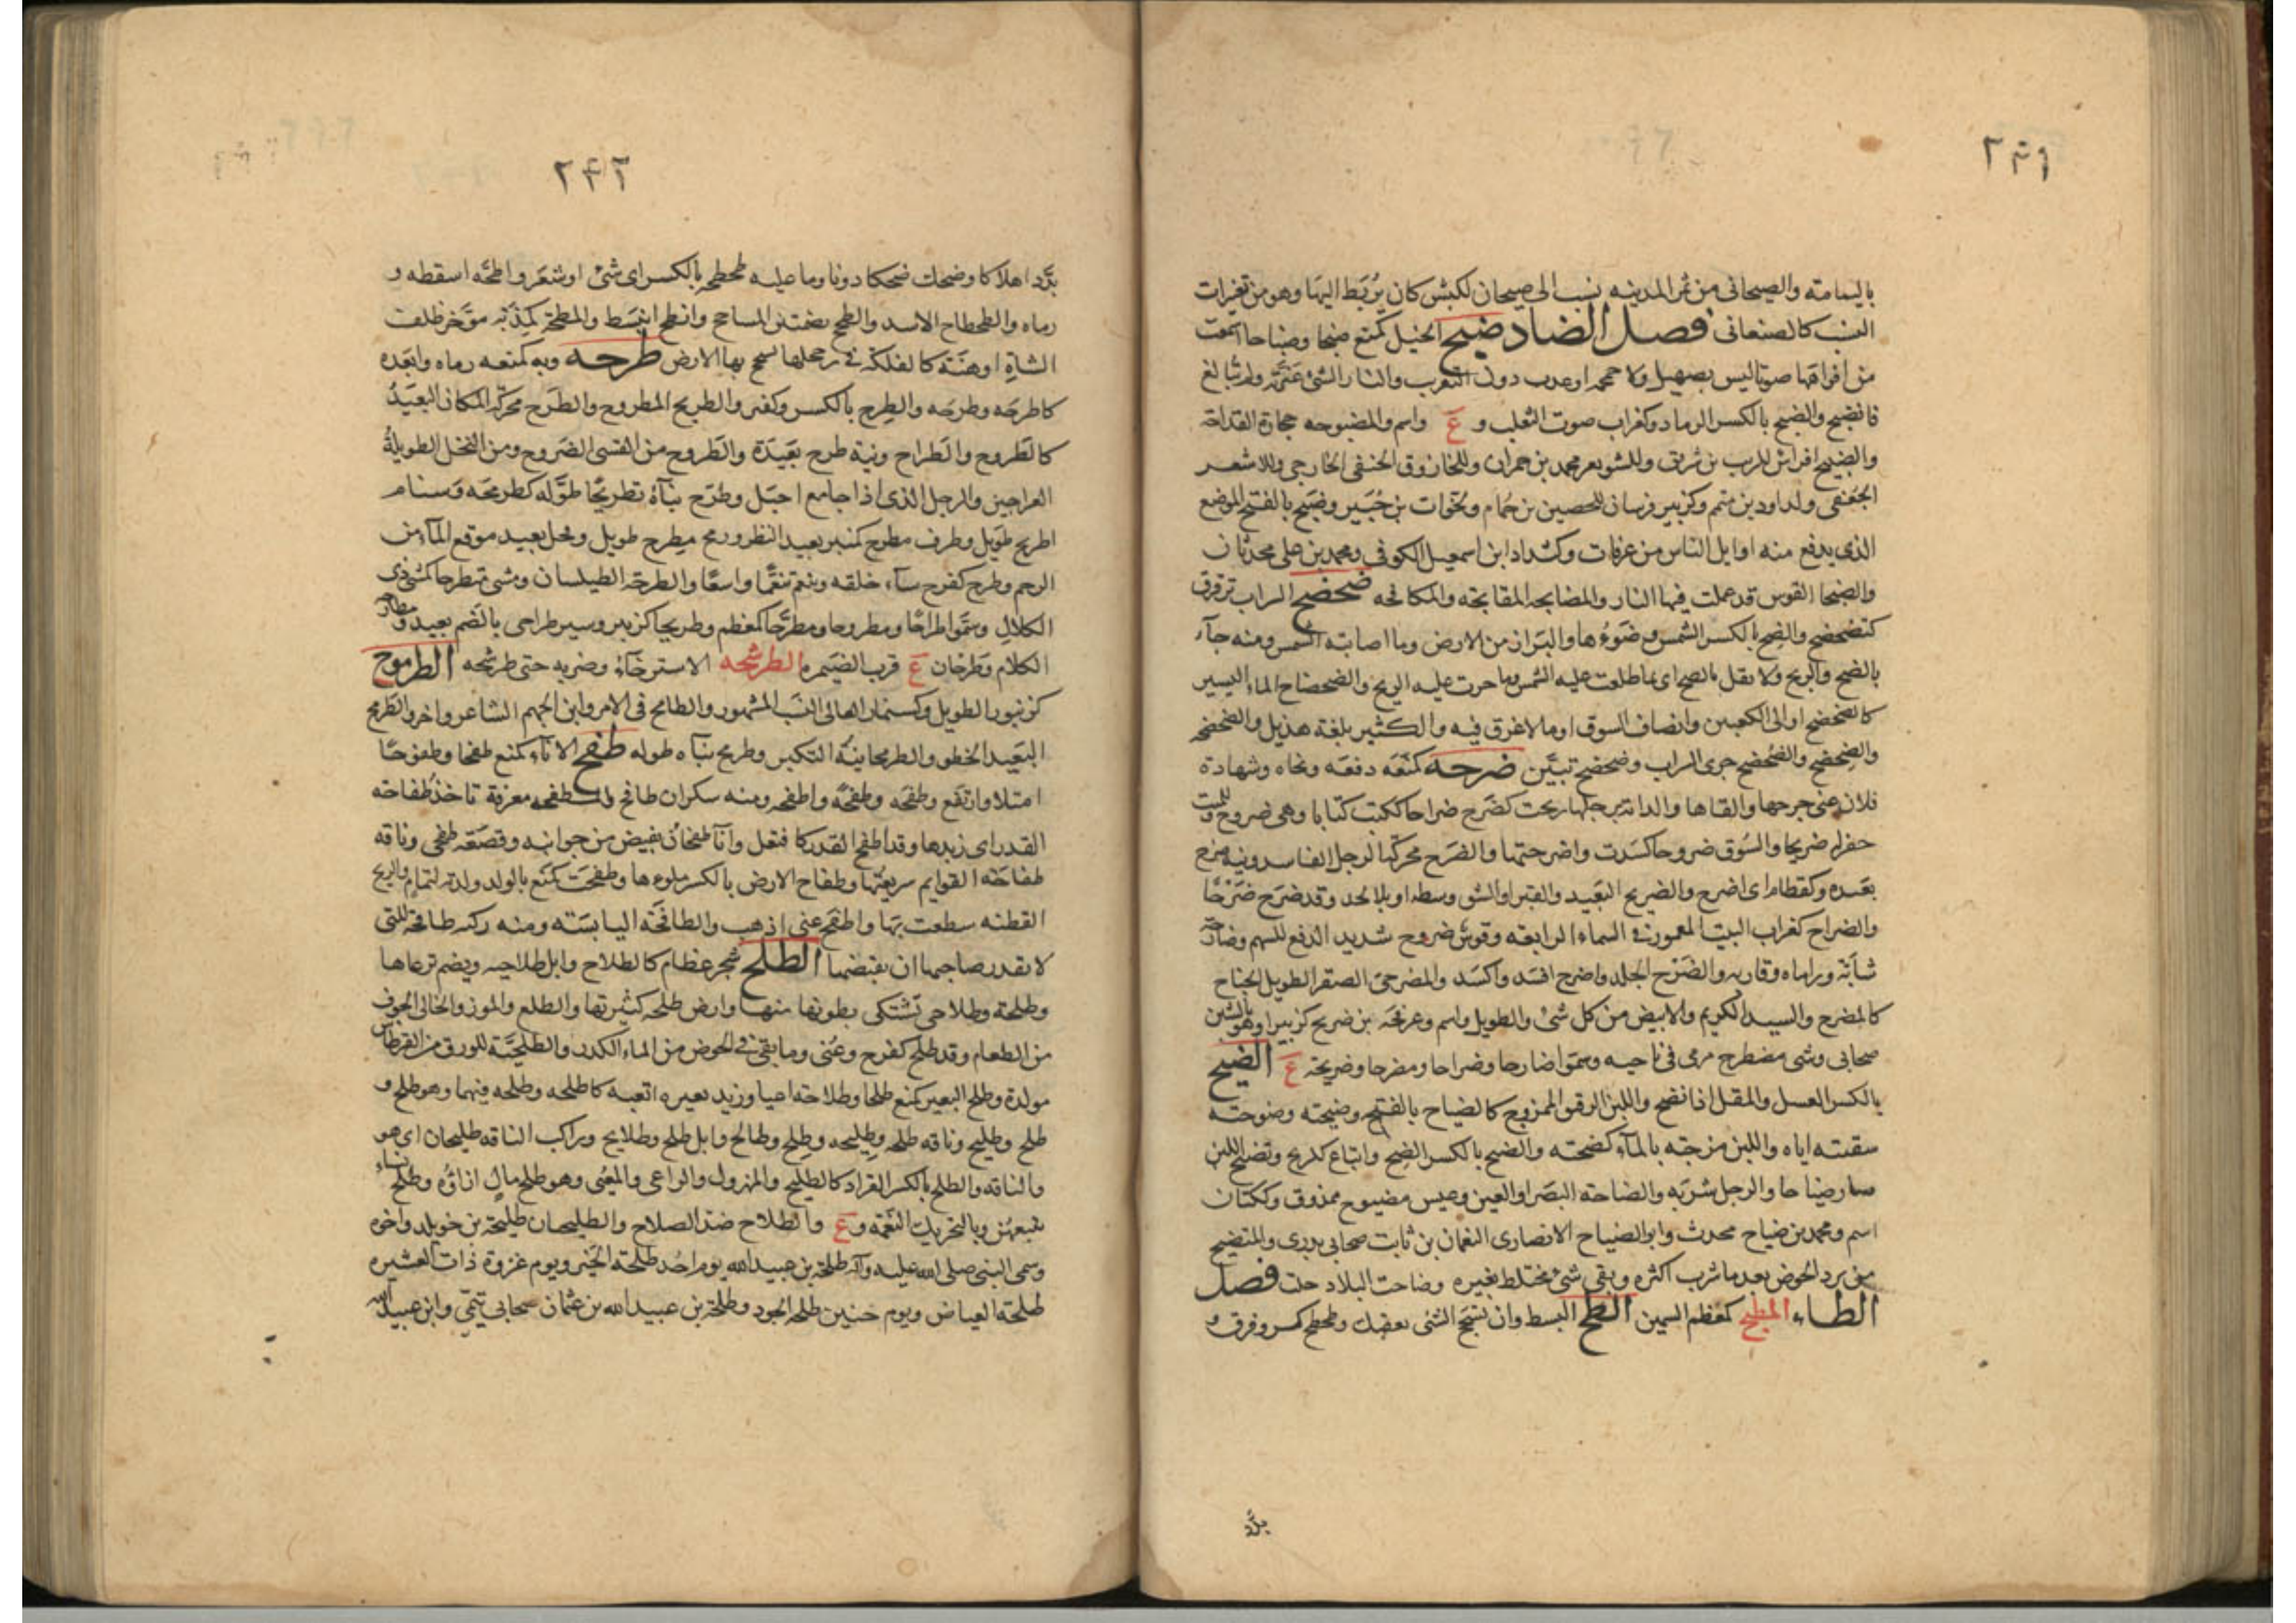 ٢٤١
باليمامة والصيحانى من تمر المدينه نسب الى صيحان لكبش كان يربط اليها وهو من تغيرات
النسب كالصنعانى فصل الضاد ضبح الخيل كمنع ضبحا وضباحا اسمعت
من افواهها صوتا ليس بصهيل ولا حمحمه او عدت دون التقريب والنار الشئ غيرته ولم تبالغ
فانضبح والضبح بالكسر الرماد وكغراب صوت الثعلب و ع واسم والمضبوحه حجارة القداحة
والضبيح افراس للريب بن شريق وللشويعر محمد بن حمران وللحازوق الحنفى الخارجى وللاسعر
الجعفى ولداود بن متمم وكزبير فرسان للحصين بن حمام ولخوات بن جبير وضبح بالفتح الموضع
الذى يدفع منه اوايل الناس من عرفات وكشداد ابن اسمعيل الكوفى ومحمد بن على محدثان
والضبحا القوس قد عملت فيها النار والمضابحه المقابحه والمكافحه ضحضح السراب ترقرق
كتضحضح والضح بالكسر الشمس وضوءها والبراز من الارض وما اصابته الشمس ومنه جاء
بالضح والريح ولا تقل بالضيح اى بما طلعت عليه الشمس وما جرت عليه الريح والضحضاح الماء اليسير
كالضحضح او الى الكعبين وانصاف السوق او ما لا غرق فيه والكثير بلغة هذيل والضحضحه
والضحضح والضحضح جرى السراب وضحضح تبين ضرحه كمنعه دفعه ونحاه وشهادة
فلان عنى جرحها والقاها والدابه برجلها رمحت كضرح ضراحا ككتب كتابا وهى ضروح وللميت
حفر له ضريحا والسوق ضروحا كسدت واضرحتها والضرح محركة الرجل الفاسد ونية ضرح
بعيده وكقطام اى اضرح والضريح البعيد والقبر او الشق وسطه او بلا لحد وقد ضرح ضرحا
والضراح كغراب البيت المعمور فى السماء الرابعه وقوس ضروح شديد الدفع للسهم وضارحه
شابه وراماه وقاربه والضرح الجلد واضرح افسد واكسد والمضرحى الصقر الطويل الجناح
كالمضرح والسيد الكريم والابيض من كل شئ والطويل واسم وعرفجه بن ضريح كزبير او هو بالشين
صحابى وشى مضطرح مرمى فى ناحيه وسموا ضارحا وضراحا ومضرحا وضريحة ع الضيح
بالكسر العسل والمقل اذا نضج واللبن الرقيق الممزوج كالضياح بالفتح وضيحته وضوحته
سقيته اياه واللبن مزجته بالماء كضحته والضيح بالكسر الضح واتباع للريح وتضيح اللبن
صار ضياحا والرجل شربه والضاحة البصر او العين وعيس مضيوح ممذوق وككتان
اسم ومحمد بن ضياح محدث وابو الضياح الانصارى النعمان بن ثابت صحابى بدرى والمتضيح
من يرد الحوض بعد ما شرب اكثره وبقى شئ مختلط بغيره وضاحت البلاد خلت فصل
الطاء المطبح كمعظم السمين الطح البسط وان تسحج الشئ بعقبك وطحطح كسر وفرق و
بدد
٢٤٢
بدد اهلاكا وضحك ضحكا دونا وما عليه طحطحه بالكسر اى شئ او شعر واطحه اسقطه و
رماه والطحطاح الاسد والطحح بضمتين المساحج وانطح انبسط والمطحة كمذبه موخر ظلف
الشاة او هنة كالفلكة فى رجلها تسحج بها الارض طرحه وبه كمنعه رماه وابعده
كاطرحه وطرحه والطرح بالكسر وكقبر والطريح المطروح والطرح محركة المكان البعيد
كالطروح والطراح ونية طرح بعيدة والطروح من القسى الضروح ومن النخل الطويلة
العراجين والرجل الذى اذا جامع احبل وطرح بناه تطريحا طوله كطرمحه وسنام
اطريح طويل وطرف مطرح كمنبر بعيد النظر ورمح مطرح طويل وفحل بعيد موقع الماء من
الرحم وطرح كفرح ساء خلقه وتنعم تنعما واسعا والطرحة الطيلسان ومشى متطرحا كمشى ذى
الكلال وسموا طراحا ومطروحا ومطرحا كمعظم وطريحا كزبير وسير طراحى بالضم بعيد ومطارحه
الكلام وطرحان ع قرب الضيمره الطرشحه الاسترخاء وضربه حتى طرشحه الطرموح
كزنبور الطويل وكسنمار العالى النسب المشهور والطامح فى الامر وابن الجهم الشاعر واخر والطرمح
البعيد الخطو والطرمحانية التكبر وطرمح بناه طوله طفح الاناء كمنع طفحا وطفوحا
امتلا وارتفع وطفحه وطفحه واطفحه ومنه سكران طافح والمطفحه مغرفة تاخذ طفاحة
القدر اى زبدها وقد اطفح القدر كافتعل واناء طفحان يفيض من جوانبه وقصعة طفحى وناقه
طفاحة القوايم سريعتها وطفاح الارض بالكسر ملوءها وطفحت كمنع بالولد ولدته لتمام والريح
القطنه سطعت بها واطفح عنى اذهب والطافحه اليابسته ومنه ركبه طافحة للتى
لا يقدر صاحبها ان يقبضها الطلح شجر عظام كالطلاح وابل طلاحيه ويضم ترعاها
وطلحة وطلاحى تشتكى بطونها منها وارض طلحه كثيرتها والطلع والموز والخالى الجوف
من الطعام وقد طلح كفرح وعنى وما بقى فى الحوض من الماء الكدر والطلحية للورق من القرطاس
مولدة وطلح البعير كمنع طلحا وطلاحة اعيا وزيد بعيره اتعبه كاطلحه وطلحه فيهما وهو طلح و
طلح وطليح وناقه طلحه وطليحه وطلح وطالح وابل طلح وطلايح وراكب الناقه طليحان اى هو
والناقه والطلح بالكسر القراد كالطليح والمهزول والراعى والمعنى وهو طلح مال ازاؤه وطلح نساء
يتبعهن وبالتحريك النعمه و ع والطلاح ضد الصلاح والطليحان طليحة بن خويلد واخوه
وسمى النبى صلى الله عليه وآله طلحة بن عبيد الله يوم احد طلحة الخير ويوم غزوة ذات العشيره
طلحة الفياض ويوم حنين طلحة الجود وطلحة بن عبيد الله بن عثمان صحابى تيمى وابن عبيد الله